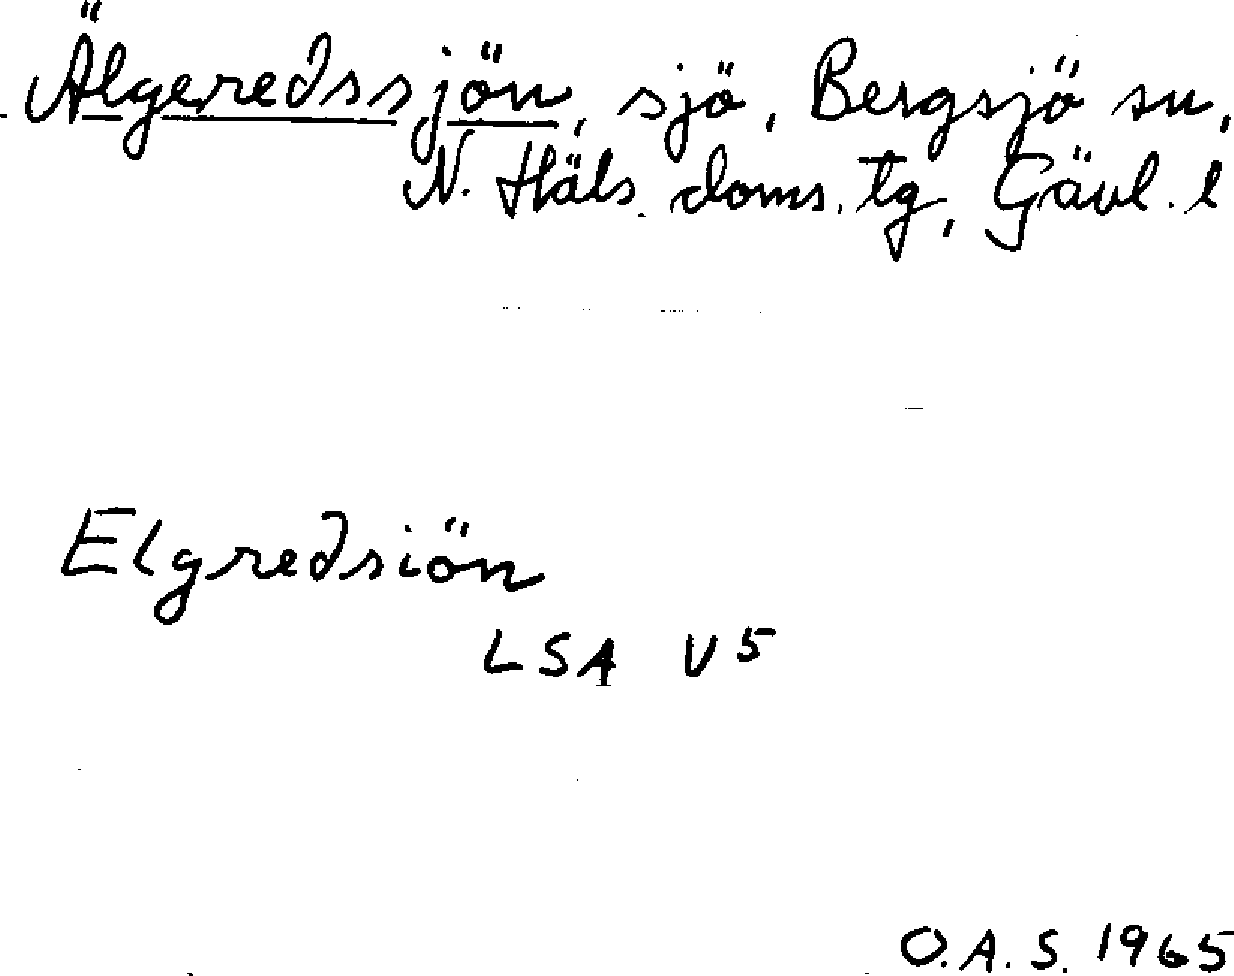 Älgeredssjön, sjö, Bergsjö sn,
N. Häls. doms. tg, Gävl. l
Elgredsiön
LSA V5
O.A.S. 1965